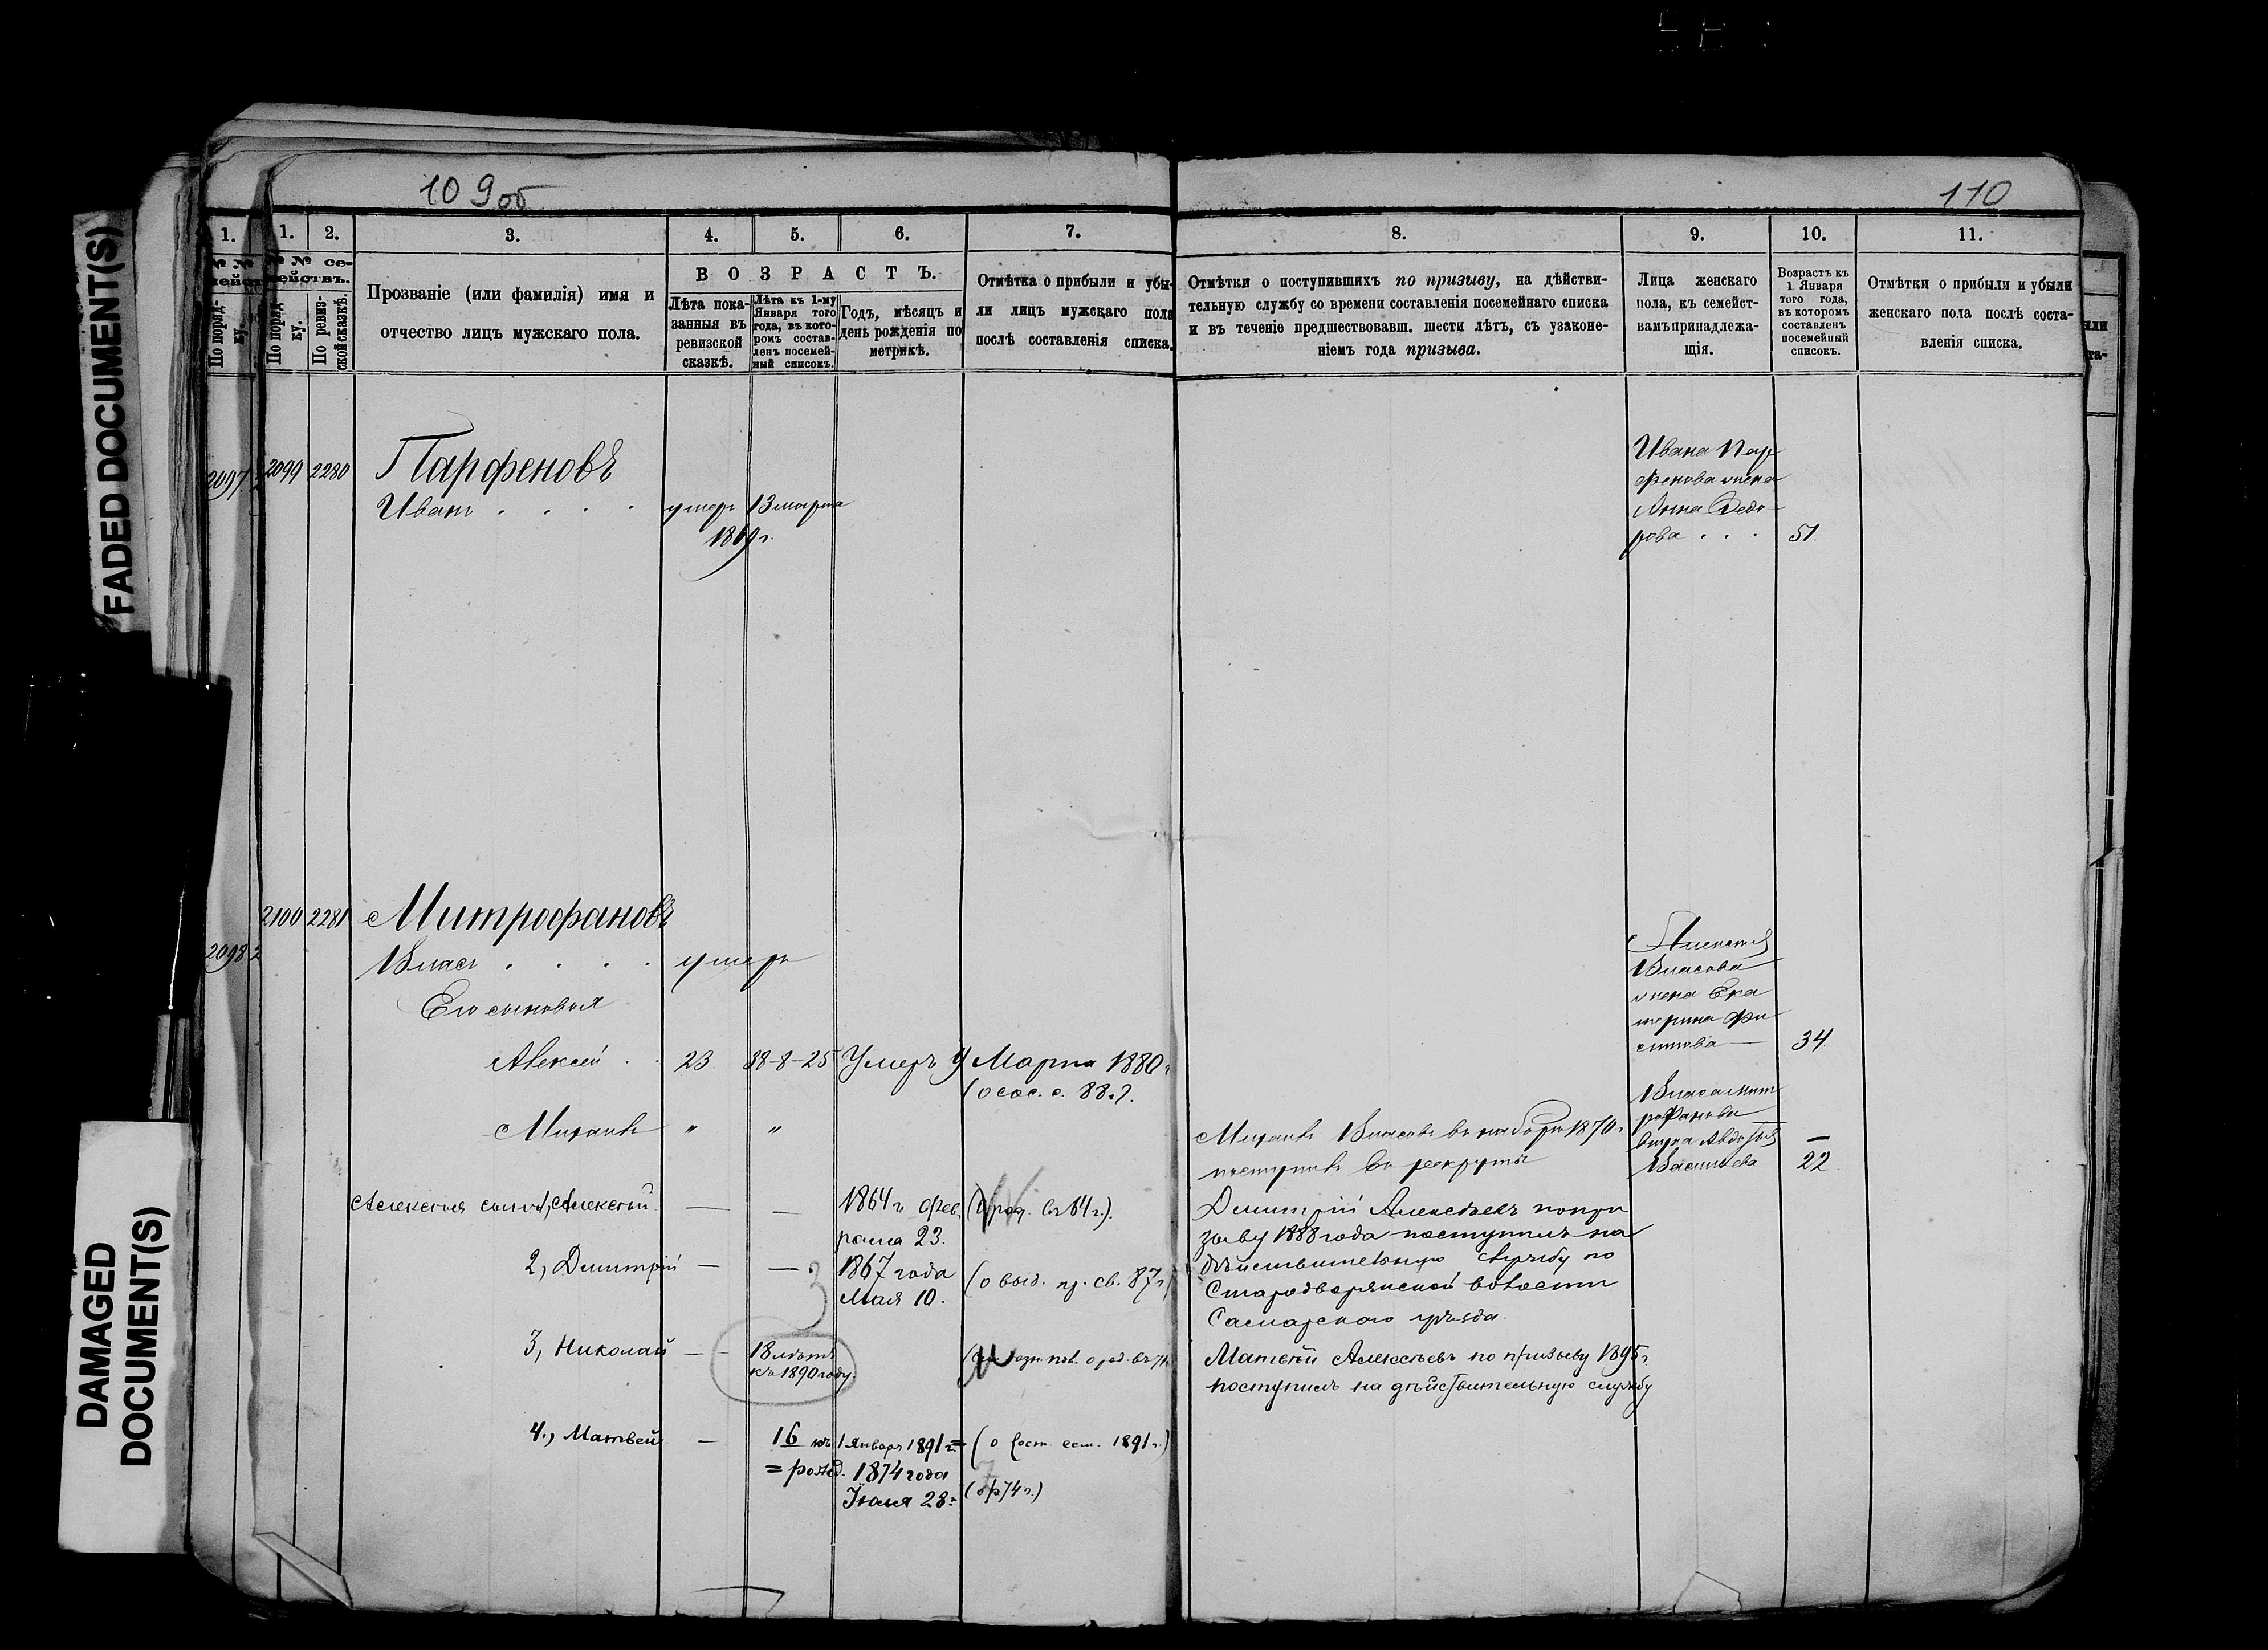 FADED DOCUMENT(S)
DAMAGED
DOCUMENT(S)
109об
110
1.
1.
2.
3.
4.
5.
6.
7.
8.
9.
10.
11.
№ № се-
мействъ.
По порядку.
По порядку.
По ревизской сказкѣ.
Прозваніе (или фамилія) имя и
отчество лицъ мужскаго пола.
ВОЗРАСТЪ.
Лѣта пока-
занныя въ
ревизской
сказкѣ.
Лѣта къ 1-му
Января того
года, въ кото-
ромъ состав-
ленъ посемей-
ный списокъ.
Годъ, мѣсяцъ и
день рожденія по
метрикѣ.
Отмѣтка о прибыли и убы-
ли лицъ мужскаго пола
послѣ составленія списка.
Отмѣтки о поступившихъ по призыву, на дѣйстви-
тельную службу со времени составленія посемейнаго списка
и въ теченіе предшествовавш. шести лѣтъ, съ узаконе-
ніемъ года призыва.
Лица женскаго
пола, къ семейст-
вамъ принадлежа-
щія.
Возрастъ къ
1 Января
того года,
въ которомъ
составленъ
посемейный
списокъ.
Отмѣтки о прибыли и убыли
женскаго пола послѣ соста-
вленія списка.
2097
2099 2280 Парфеновъ
Иванъ . . . . умеръ 13 марта
1869 г.
Ивана Пар
фенова жена
Анна Федо-
рова . . . 51
2100 2281 Митрофановъ
2098
Власъ . . . . умеръ
Его сыновья
Алексей . . 23 38-8-25 Умеръ 4 Марта 1880 г
88.
Михаилъ " "
Алексея
Власова
жена Ека
терина
34
Власа Мит
рофанова
внука Авдотья —
Васильева 22
Михаилъ Власовъ въ наборъ 1870 г.
поступилъ въ рекруты
Алексея сын. 1, Алексѣй — — 1864 г. фев.
раля 23.
( род. въ 64 г.).
2, Димитрій — — 1867 года
Мая 10.
(о выд. пр. св. 87 г)
3
Димитрій Алексѣевъ попри
зыву 1888 года поступилъ на
дѣйствительную службу по
Стародворянской волости
Самарскаго уѣзда.
3, Николай — 18 лѣтъ
къ 1890 году.
Матвѣй Алексѣевъ по призыву 1895 г
поступилъ на дѣйствительную службу
4., Матвей — 16 къ 1 января 1891 г. =
= рожд. 1874 года
Іюля 28.
(о сост. сем. 1891 г.)
(о р 74 г.)